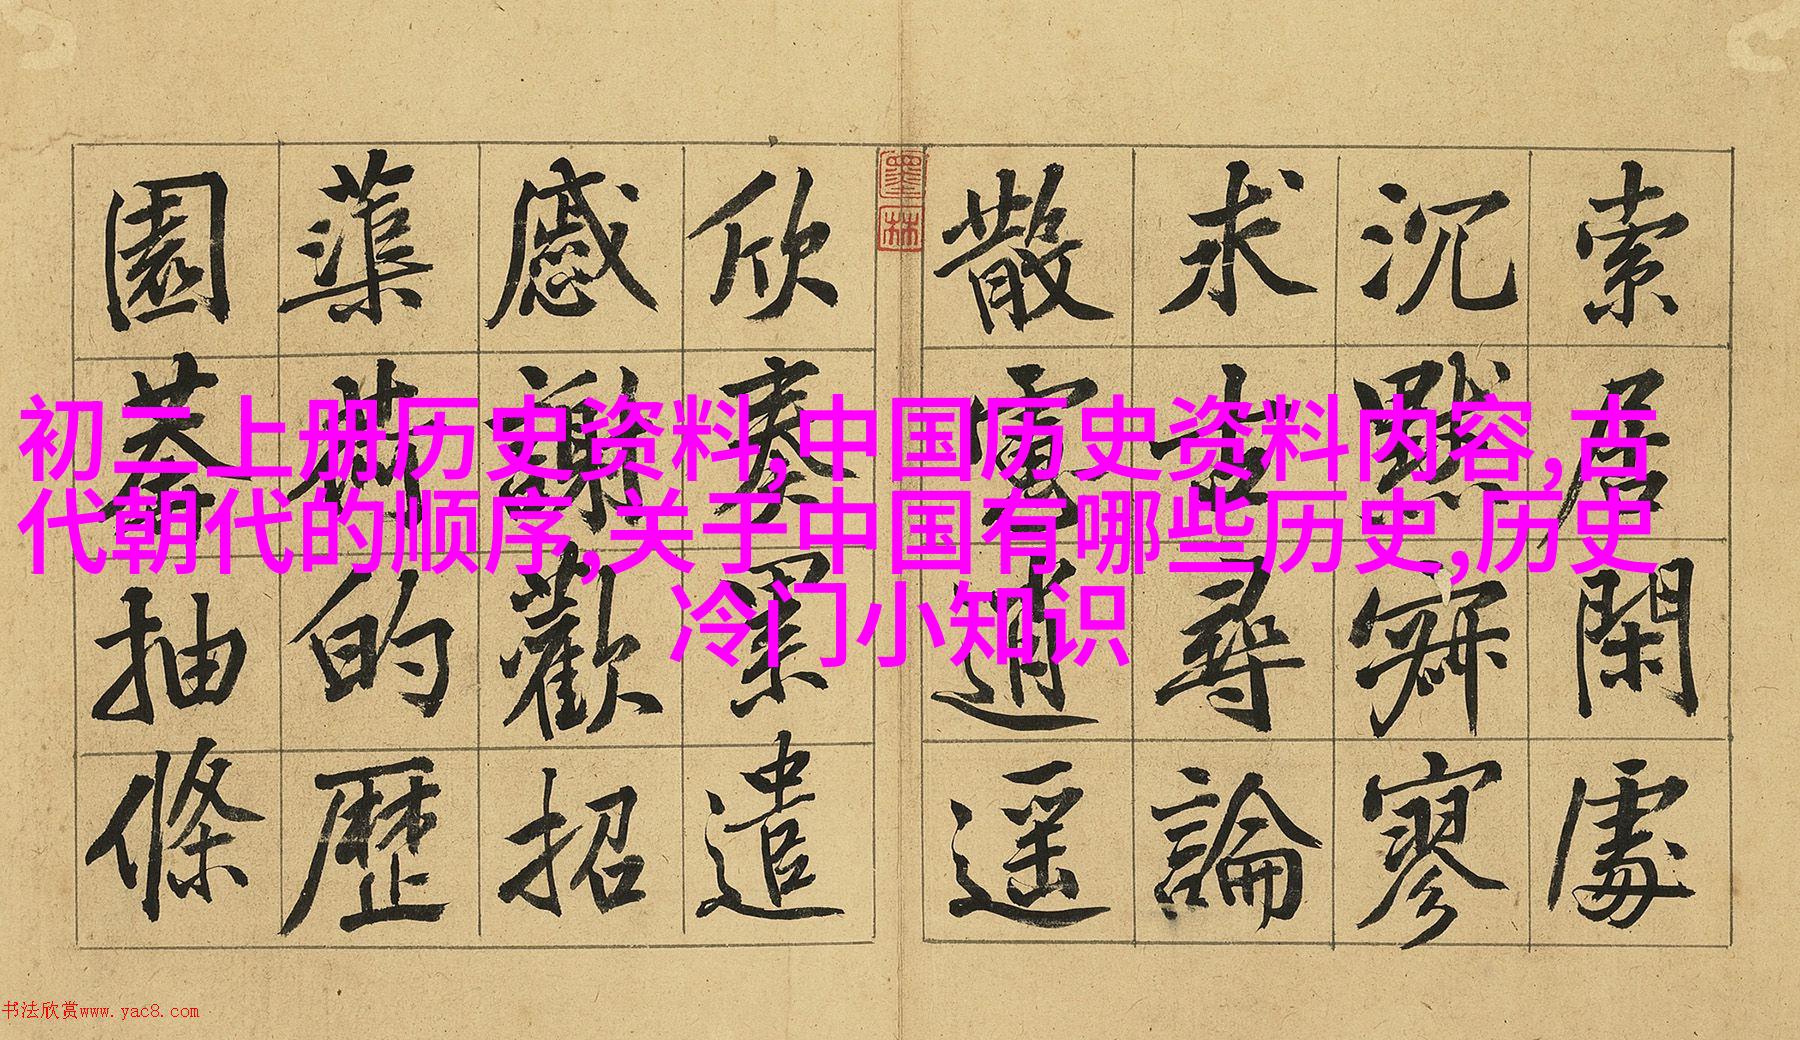 索居閑處
沉默寂寥
求古尋論
散慮逍遥
墨林
欣奏累遣
慼謝歡招
蕖荷的歷
園莽抽條
初二上册历史资料,中国历史资料内容,古
代朝代的顺序,关于中国有哪些历史,历史
冷门小知识
书法欣赏www.yac8.com